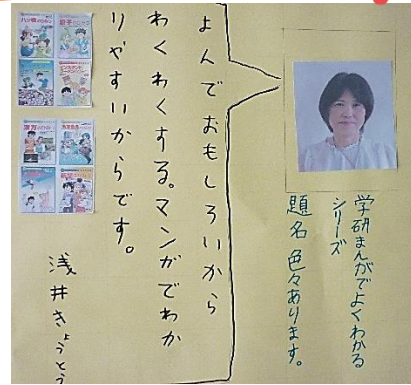 学研まんがでよくわかる
シリーズ
題名 色々あります。
よんでおもしろいから
わくわくする。マンガでわか
りやすいからです。
浅井きょうとう